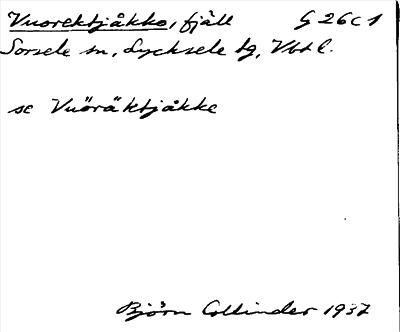 Vuorektjåkko, fjäll G 26 C 1
Sorsele sn, Lycksele tg, Vbtl.
se Vuöräktjåkke
Björn Collinder 1937